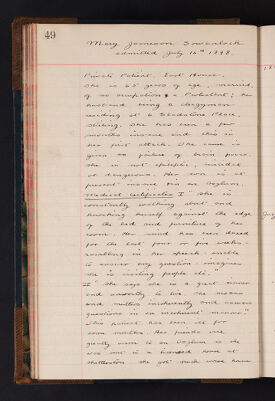 49
Mary Jameson Sowenlock
admitted July 16th 1898.
Private Patient, East House.
She is 65 years of age, married,
of no occupation, a Protestant; her
husband being a clergyman
residing at 6 Gladstone Place,
Stirling. She has been a few
months insane and this is
her first attack. The cause is
given as failure of brain power.
She is not epileptic, suicidal
or dangerous. Her son is at
present insane in an asylum.
Medical Certificates I "She is
constantly walking about and
knocking herself against the edge
of the bed and furniture of her
room. Her mind has been dazed
for the last four or five weeks -
rambling in her speech unable
to answer any question - imagines
she is visiting people etc."
II "She says she is a great sinner
and unworthy to live. She moans
and mutters incoherently and answers
questions in an incoherent manner."
This patient has been ill for
some months. Her friends are
greatly averse to an Asylum so she
was sent to a boarded house at
She got much worse here